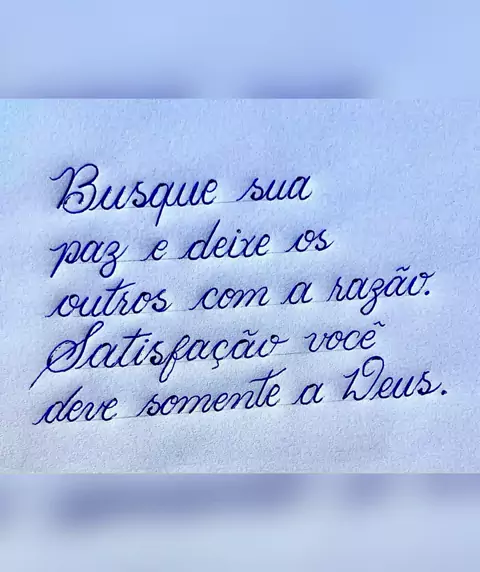 Busque sua
paz e deixe os
outros com a razão.
Satisfação você
deve somente a Deus.